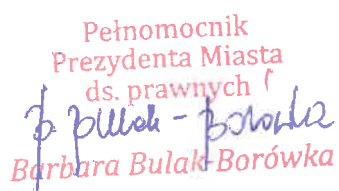 Pełnomocnik
Prezydenta Miasta
ds. prawnych
B. Bulak-Borówka
Barbara Bulak-Borówka